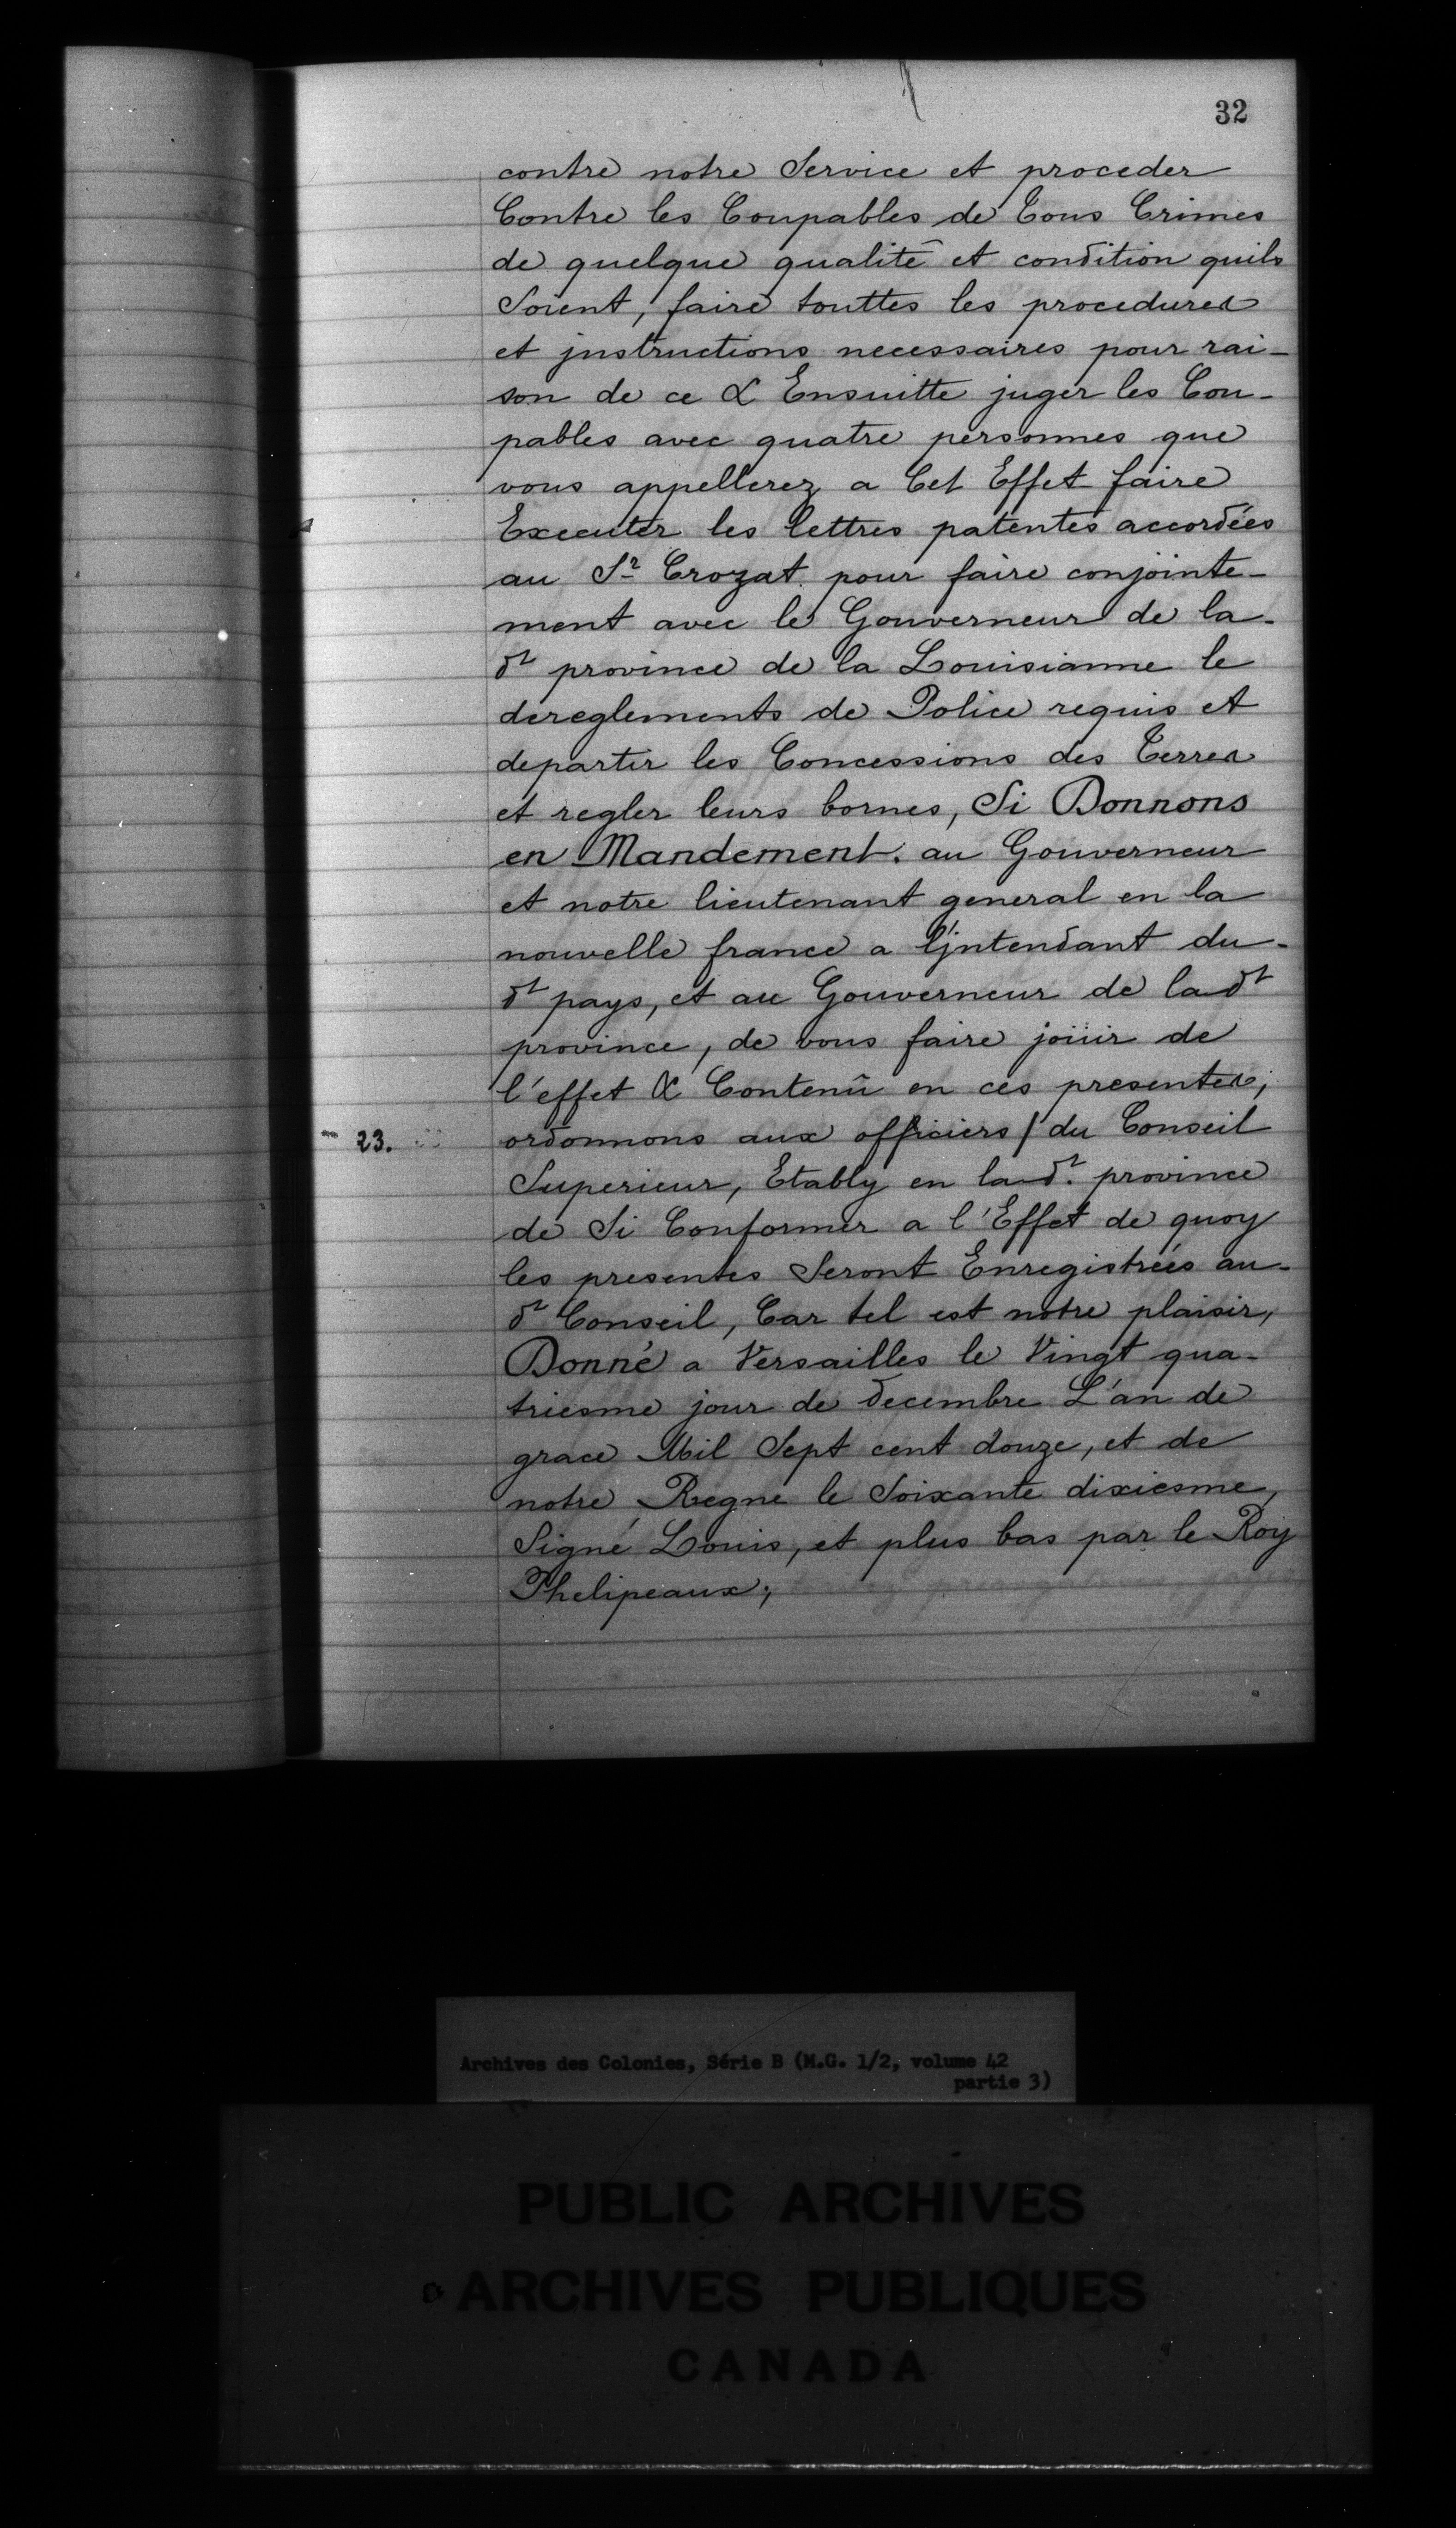 32
contre notre Service et proceder
Contre les Coupables de Tous Crimes
de quelque qualité et condition quils
Soient, faire touttes les procedures
et jnstructions necessaires pour rai-
son de ce & Ensuitte juger les Cou-
pables avec quatre personnes que
vous appellerez a Cet Effet faire
Executer les lettres patentes accordées
au Sr Crozat pour faire conjointe-
ment avec le Gouverneur de la-
dt province de la Louisianne le
dereglements de Police requis et
departir les Concessions des Terres
et regler leurs bornes, Si Donnons
en Mandement. au Gouverneur
et notre lieutenant general en la
nouvelle france a l'jntendant du-
dt pays, et au Gouverneur de la dt
province, de vous faire joüir de
l'effet & Contenû en ces presentes;
23. ordonnons aux officiers / du Conseil
Superieur, Etably en la dt. province
de Si Conformer a l'Effet de quoy
les presentes Seront Enregistrées au-
dt Conseil, Car tel est notre plaisir,
Donné a Versailles le Vingt qua-
triesme jour de decembre L'an de
grace Mil Sept cent douze, et de
notre Regne le Soixante dixiesme,
Signé Louis, et plus bas par le Roy
Phelipeaux;
Archives des Colonies, Série B (M.G. 1/2, volume 42
partie 3)
PUBLIC ARCHIVES
ARCHIVES PUBLIQUES
CANADA